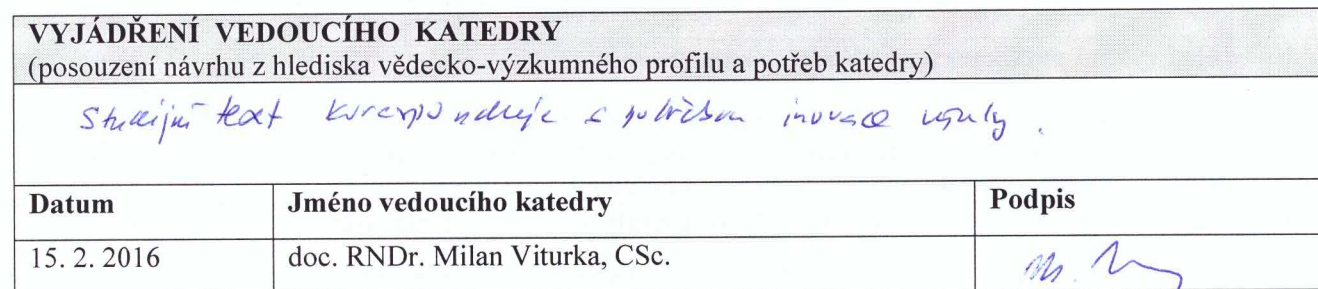 VYJÁDŘENÍ VEDOUCÍHO KATEDRY
(posouzení návrhu z hlediska vědecko-výzkumného profilu a potřeb katedry)
Studijní text koresponduje s potřebou inovace výuky.
Datum Jméno vedoucího katedry Podpis
15. 2. 2016 doc. RNDr. Milan Viturka, CSc.